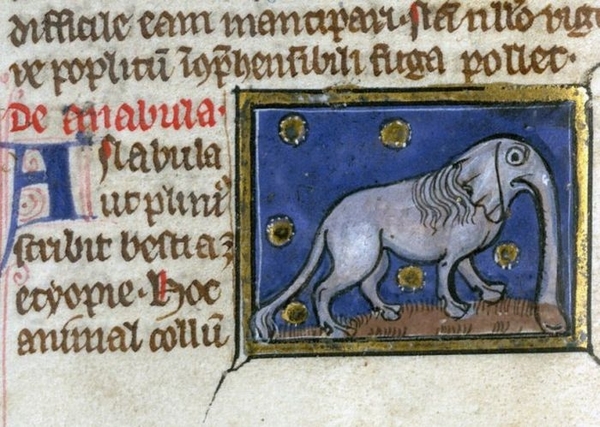 difficile eam mancipari. illo vigo
re poplitū īcōphensibili fuga pollet.
De anabula.
Anabula
ut plini9
scribit bestia ē
etyopie. Hoc
animal collū